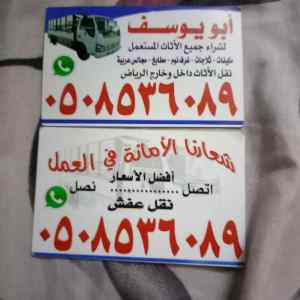 أبو يوسف
لشراء جميع الأثاث المستعمل
مكيفات - ثلاجات - غرف نوم - مطابخ - مجالس عربية
نقل الأثاث داخل وخارج الرياض
٠٥٠٨٥٣٦٠٨٩
شعارنا الأمانة في العمل
أفضل الأسعار
اتصل ................ نصل
نقل عفش
٠٥٠٨٥٣٦٠٨٩